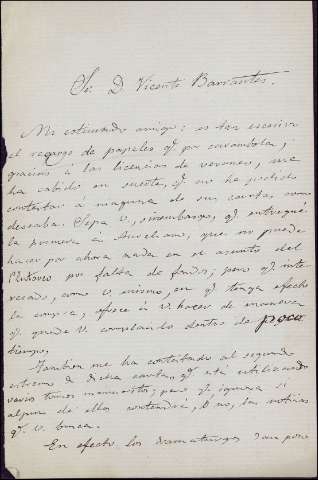 Sr. D. Vicente Barrantes.
Mi estimado amigo: es tan excesivo
el recargo de papeles q. por carambola,
gracias á las licencias de verano, me
ha cabido en suerte, q. no he podido
contestar á ninguna de sus cartas, como
deseaba. Sepa V., sin embargo, q. entregué
la primera á Aureliano, que no puede
hacer por ahora nada en el asunto del
por falta de fondos; pero q. inte-
resado, como V. mismo, en q. tenga efecto
la compra, ofrece á V. hacer de manera
q. quede V. complacido dentro de poco
tiempo.
Tambien me ha contestado al segundo
estremo de dicha carta, q. está utilizando
varios tomos manuscritos; pero q. ignora si
alguno de ellos contendrá, ó no, las noticias
q. V. busca.
En efecto los dramaturgos son poco